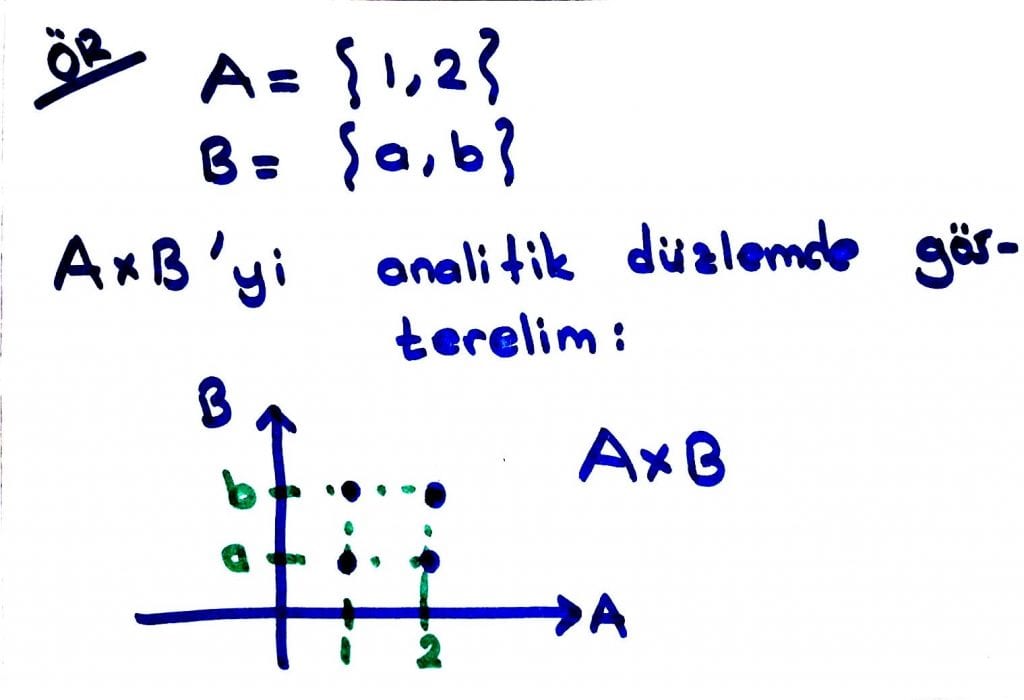 ÖR
A = {1,2}
B = {a,b}
AxB'yi analitik düzlemde gös-
terelim:
B
AxB
b
a
A
1 2